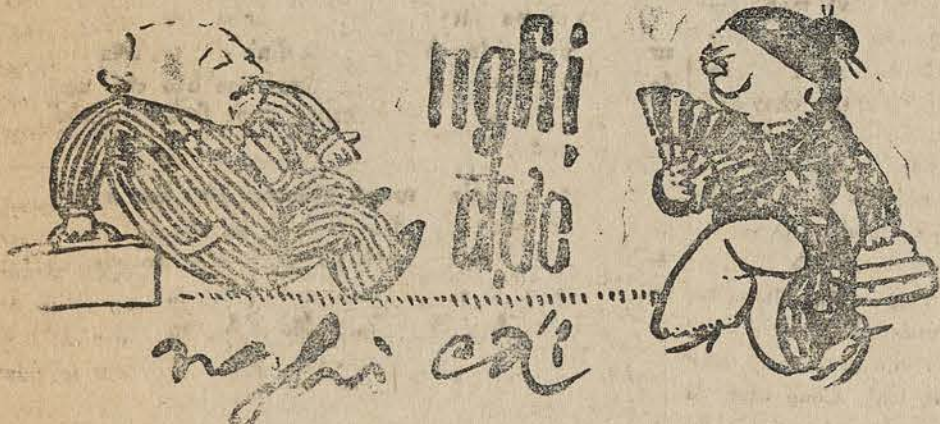 nghị
đực
nghị cái